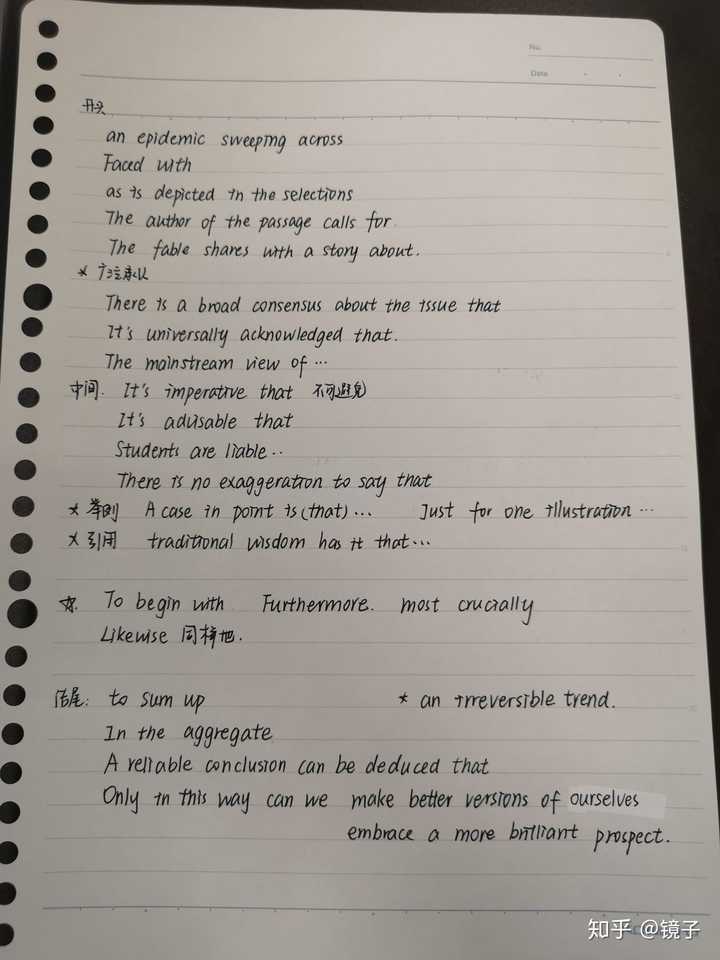 No.
Date
开头
an epidemic sweeping across
Faced with
as is depicted in the selections
The author of the passage calls for.
The fable shares with a story about.
* 广泛承认
There is a broad consensus about the issue that
It's universally acknowledged that.
The mainstream view of ...
中间. It's imperative that 不可避免
It's advisable that
Students are liable..
There is no exaggeration to say that
* 举例 A case in point is (that)... Just for one illustration ...
* 引用 traditional wisdom has it that...
☆. To begin with Furthermore. most crucially
Likewise 同样地.
结尾: to sum up * an irreversible trend.
In the aggregate
A reliable conclusion can be deduced that
Only in this way can we make better versions of ourselves
embrace a more brilliant prospect.
知乎 @镜子